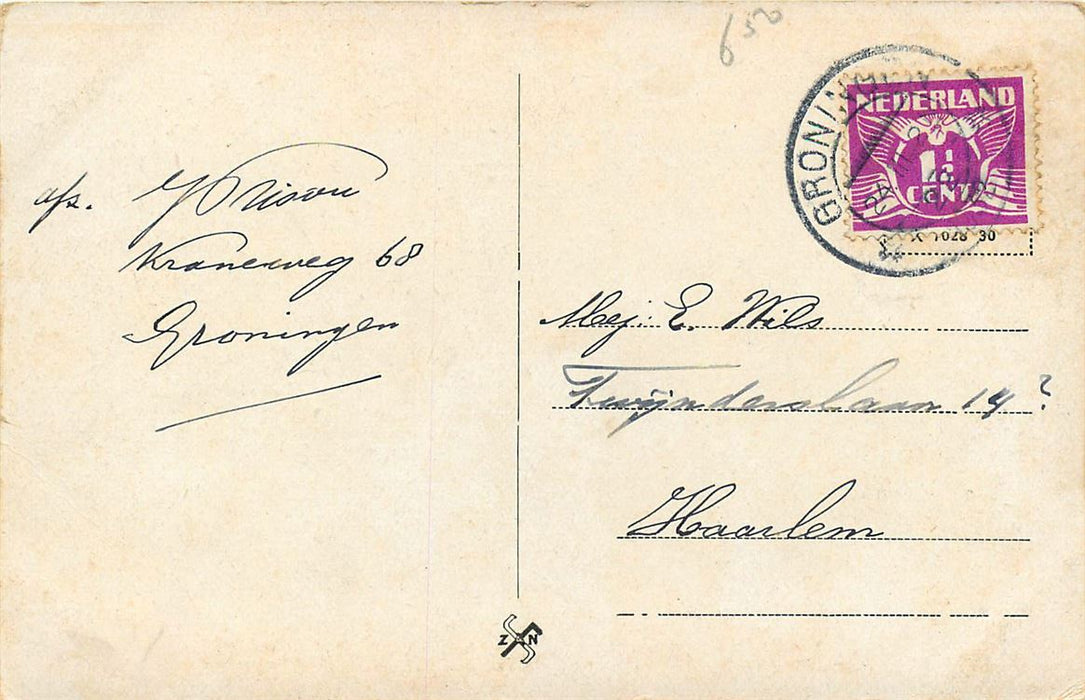 650
GRONINGEN
NEDERLAND
1½
CENT
1628 30
afz.
Kranenweg 68
Groningen
Mej. E. Wils
Twijnderslaan 14?
Haarlem
Z N